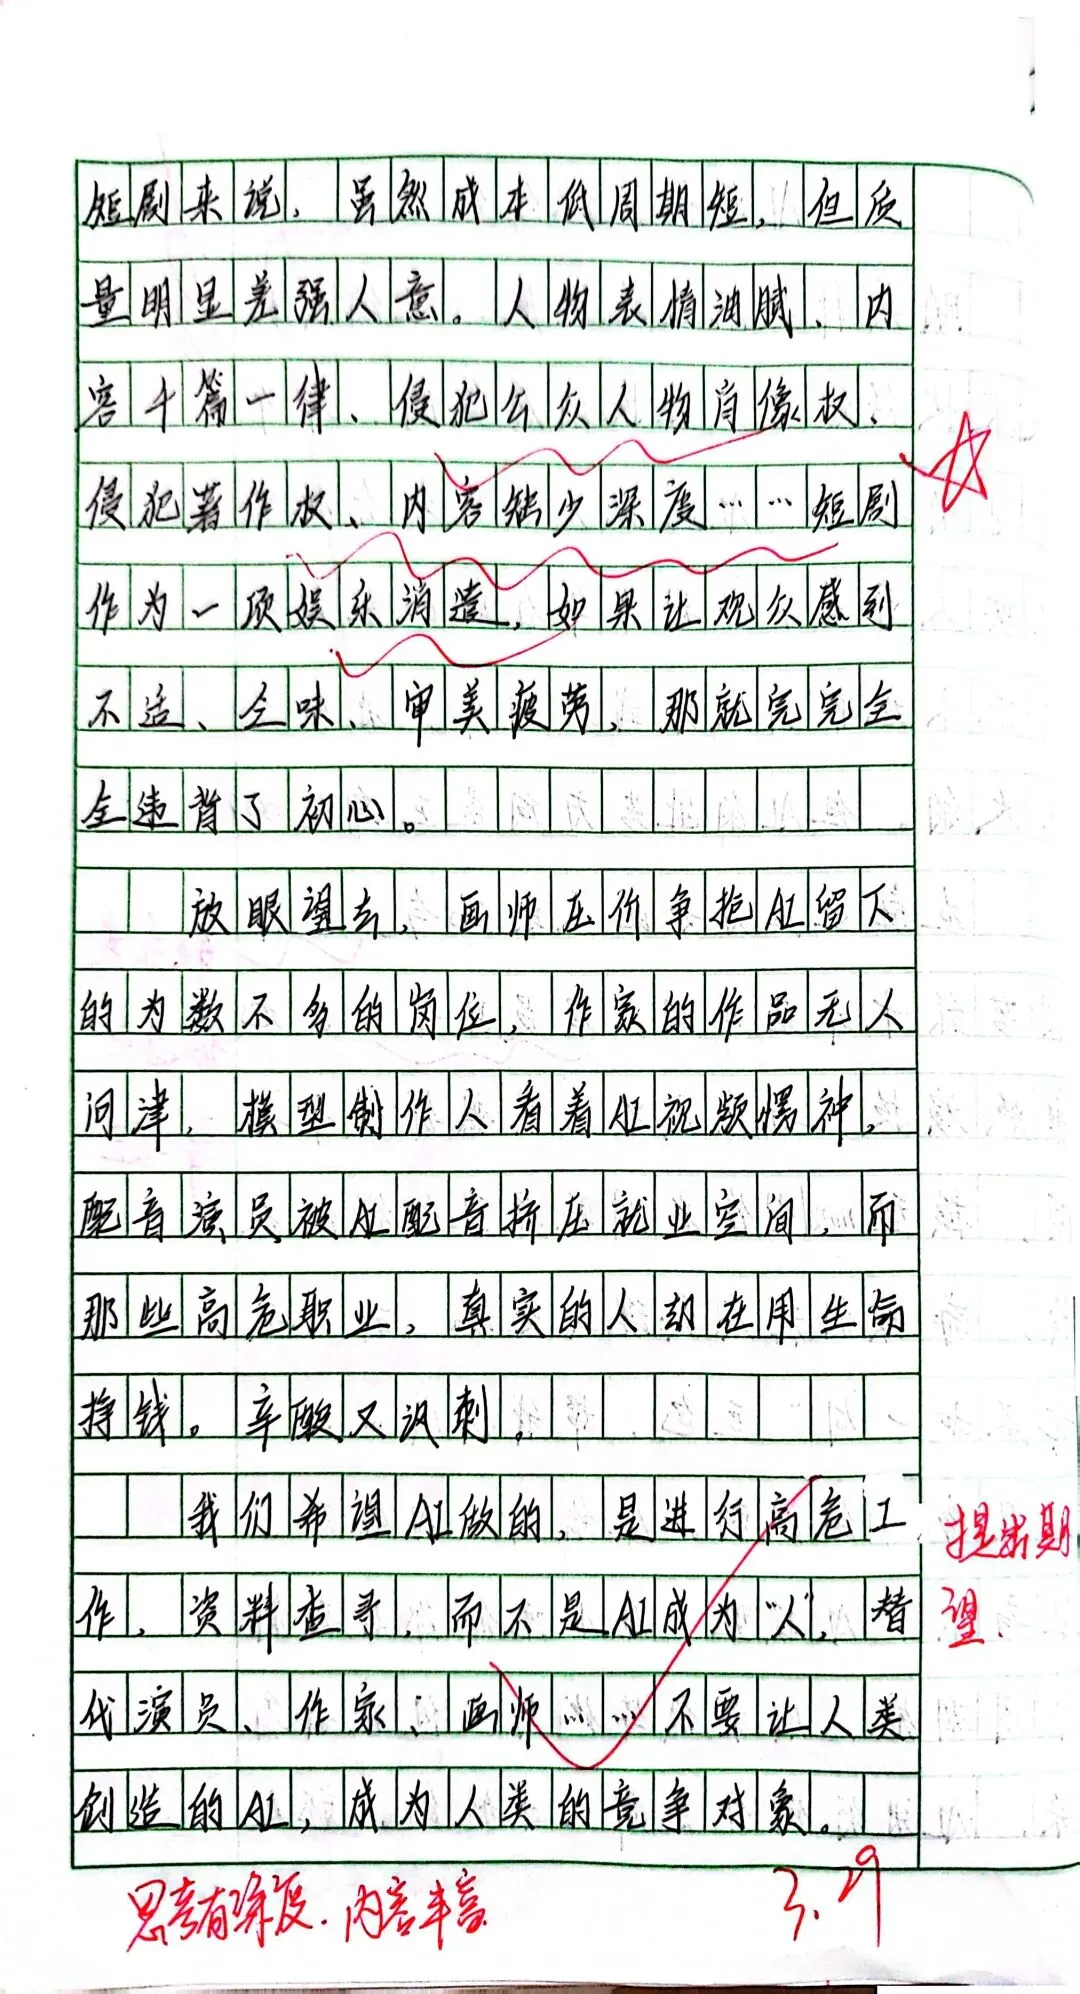 短剧来说，虽然成本低周期短，但质
量明显差强人意。人物表情油腻、内
容千篇一律、侵犯公众人物肖像权、
侵犯著作权、内容缺少深度……短剧
作为一项娱乐消遣，如果让观众感到
不适、乏味、审美疲劳，那就完完全
全违背了初心。
放眼望去，画师压价争抢AI留下
的为数不多的岗位，作家的作品无人
问津，模型制作人看着AI视频愣神，
配音演员被AI配音挤压就业空间，而
那些高危职业，真实的人却在用生命
挣钱。辛酸又讽刺。
我们希望AI做的，是进行高危工
作，资料查寻，而不是AI成为“人”，替
代演员、作家、画师……不要让人类
创造的AI，成为人类的竞争对象。
提出期
望.
思考有深度.内容丰富
3.29